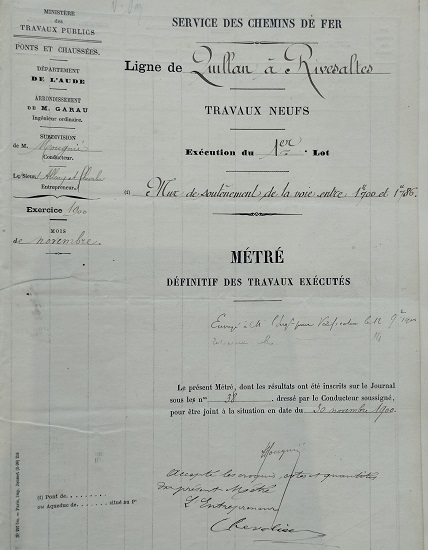 MINISTÈRE
des
TRAVAUX PUBLICS
PONTS ET CHAUSSÉES.
DÉPARTEMENT
DE L'AUDE
ARRONDISSEMENT
DE M. GARAU
Ingénieur ordinaire.
SUBDIVISION
de M. Mouquin
Conducteur.
Le Sieur
Entrepreneur.
Exercice 1900
MOIS
de novembre.
SERVICE DES CHEMINS DE FER
Ligne de Quillan à Rivesaltes
TRAVAUX NEUFS
Exécution du 1er Lot
(1) Mur de soutènement de la voie entre
MÉTRÉ
DÉFINITIF DES TRAVAUX EXÉCUTÉS
Envoyé à M. pour vérification le 12
Le présent Métré, dont les résultats ont été inscrits sur le Journal
sous les nos 38, dressé par le Conducteur soussigné,
pour être joint à la situation en date du 30 novembre 1900.
Accepté les croquis, cotes et quantités
du présent Métré
L'Entrepreneur
Chevalier
(1) Pont de
ou Aqueduc de situé au Pt